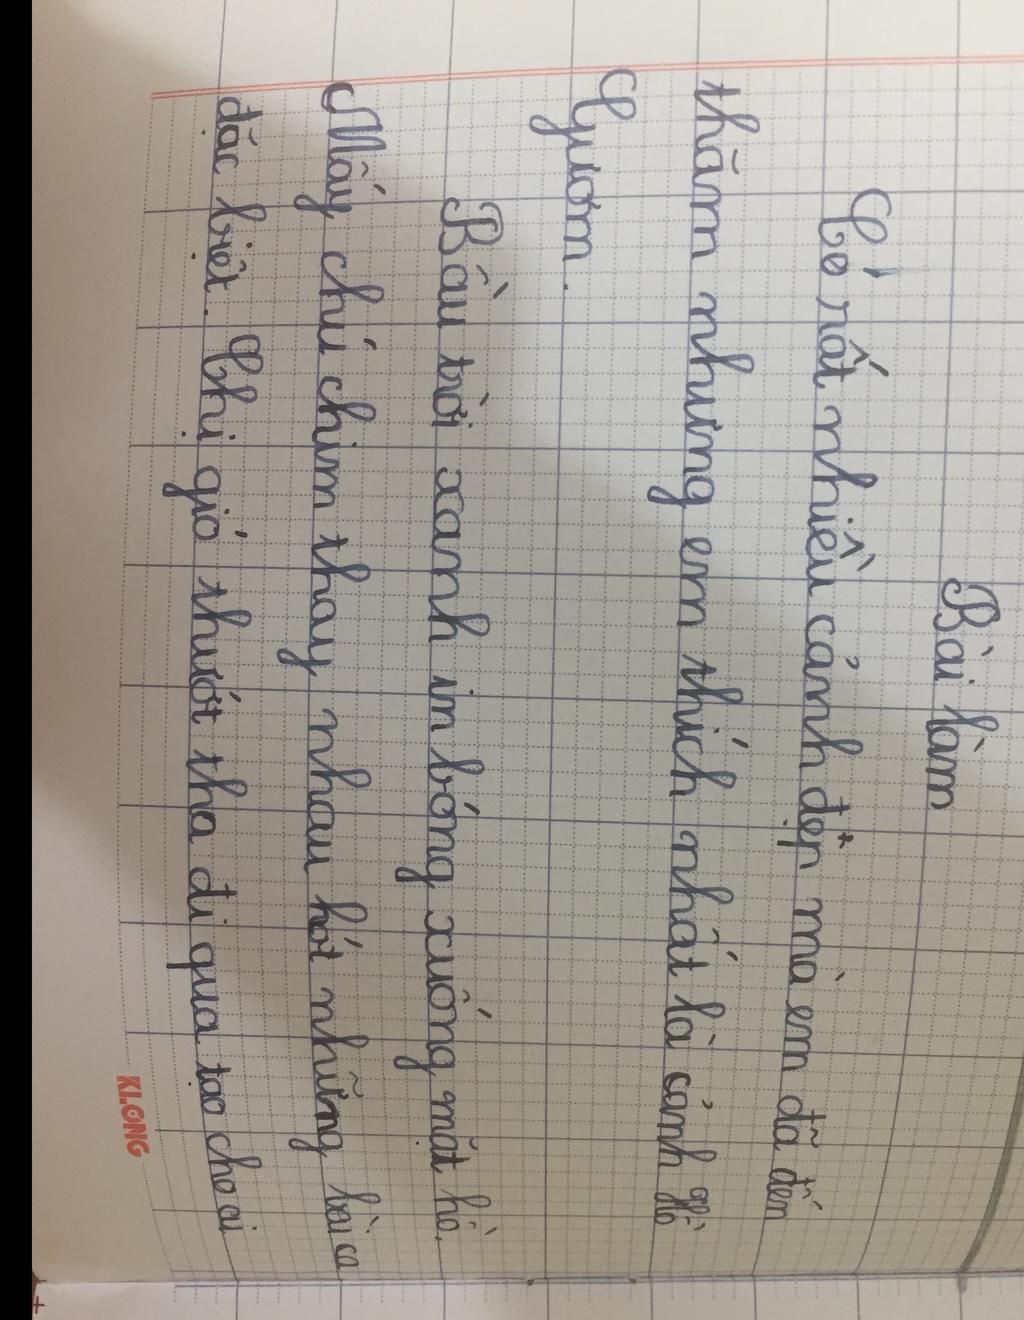 Bài làm
Có rất nhiều cảnh đẹp mà em đã đến
thăm nhưng em thích nhất là cảnh Hồ
Gươm.
Bầu trời xanh in bóng xuống mặt hồ.
Mấy chú chim thay nhau hót những bài ca
đặc biệt. Chị gió thướt tha đi qua tạo cho ai
KLONG